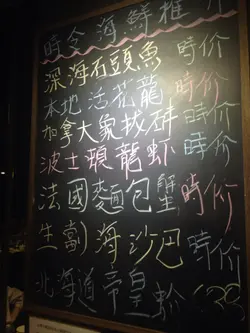 時令海鮮推介
深海石頭魚 時价
本地活花龍 時价
加拿大象拔蚌 時价
波士頓龍虾 時价
法國麵包蟹 時价
生劏海沙巴 時价
北海道帝皇蚧